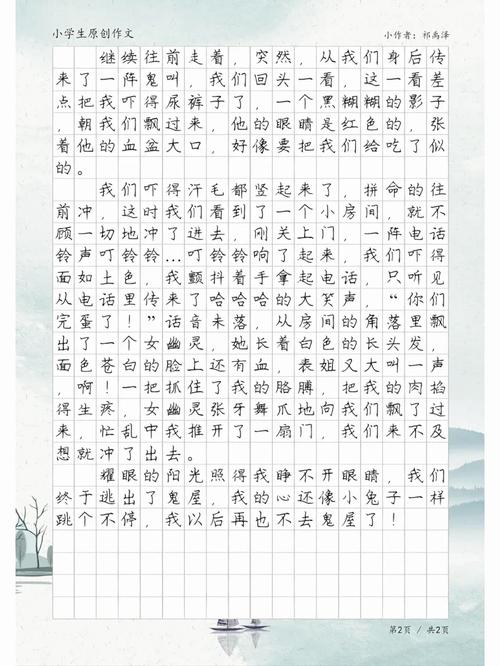 小学生原创作文
小作者：祁禹泽
继续往前走着，突然，从我们身后传
来了一阵鬼叫，我们回头一看，这一看差
点把我吓得尿裤子了，一个黑糊糊的影子
，朝我们飘过来，他的眼睛是红色的，张
着他的血盆大口，好像要把我们给吃了似
的。
我们吓得汗毛都竖起来了，拼命的往
前冲，这时我们看到了一个小房间，就不
顾一切地冲了进去，刚关上门，一阵电话
铃声叮铃铃…叮铃铃响了起来，我们吓得
面如土色，我颤抖着手拿起电话，只听见
从电话里传来了哈哈哈的大笑声，“你们
完蛋了！”话音未落，从房间的角落里飘
出了一个女幽灵，她长着白色的长头发，
面色苍白的脸上还有血，表姐又大叫一声
，啊！一把抓住了我的胳膊，把我的肉掐
得生疼，女幽灵张牙舞爪地向我们飘了过
来，忙乱中我推开了一扇门，我们来不及
想就冲了出去。
耀眼的阳光照得我睁不开眼睛，我们
终于逃出了鬼屋，我的心还像小兔子一样
跳个不停，我以后再也不去鬼屋了！
第2页 / 共2页